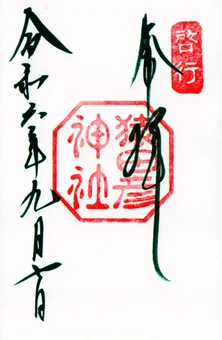 啓行
奉拝
猿田彦
神社
令和六年九月七日